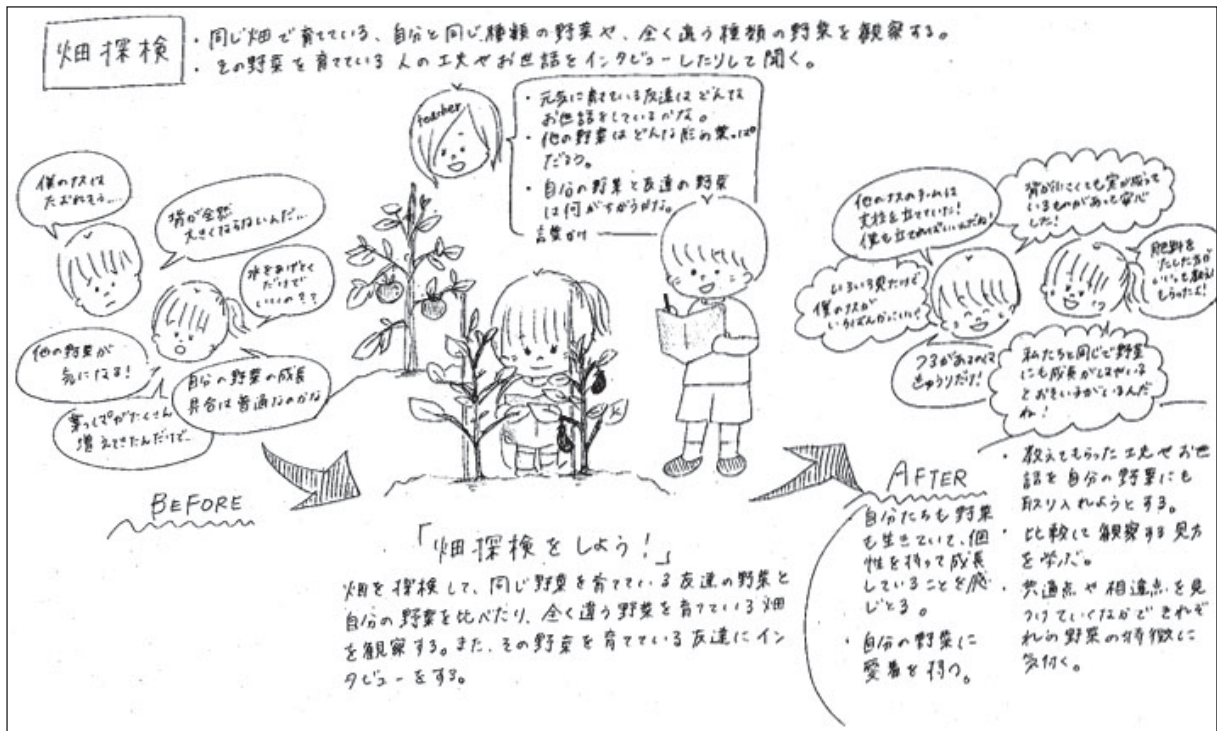 畑探検
・同じ畑で育てている、自分と同じ種類の野菜や、全く違う種類の野菜を観察する。
・その野菜を育てている人の工夫やお世話をインタビューしたりして聞く。
teacher
・元気に育てている友達はどんな
お世話をしているかな。
・他の野菜はどんな形の葉っぱ
だろう。
・自分の野菜と友達の野菜
は何がちがうかな。
言葉かけ
僕のナスは
たおれそう…
背が全然
大きくならないんだ…
水をあげとく
だけで
いいのかな?
他の野菜が
気になる!
自分の野菜の成長
具合は普通なのかな
葉っぱがたくさん
増えてきたんだけど…
BEFORE
「畑探検をしよう!」
畑を探検して、同じ野菜を育てている友達の野菜と
自分の野菜を比べたり、全く違う野菜を育てている畑
を観察する。また、その野菜を育てている友達にイン
タビューをする。
他のナスのチームは
支柱を立てていた!
僕も立てればいいんだね!
背が小さくても実が成って
いるものがあって安心
した!
いろいろ見たけど
僕のナスが
いちばんかっこいい
肥料を
たした方が
いいって教えて
もらったよ!
つるがあるのは
きゅうりだけ!
私たちと同じで野菜
にも成長がはやいこ
とおそい子がいるんだ
ね!
AFTER
・自分たちも野菜
も生きていて、個
性を持って成長
していることを感
じとる。
・自分の野菜に
愛着を持つ。
・教えてもらった工夫やお世
話を自分の野菜にも
取り入れようとする。
・比較して観察する見方
を学ぶ。
・共通点や相違点を見
つけていくなかでそれぞ
れの野菜の特徴に
気付く。